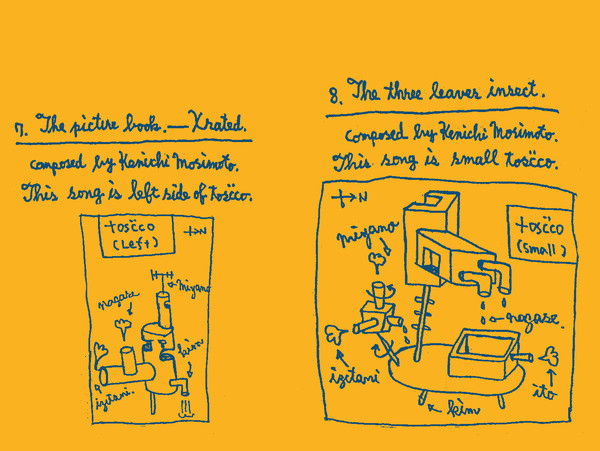 7. The picture book. — Xrated.
composed by Kenichi Mosimoto.
This song is left side of tosc̈co.
tosc̈co
(Left)
N
nagase
Miyano
kim
izitani.
8. The three leaves insect.
composed by Kenichi Mosimoto.
This song is small tosc̈co.
N
miyano
tosc̈co
(small)
nagase.
izitani
kim
ito